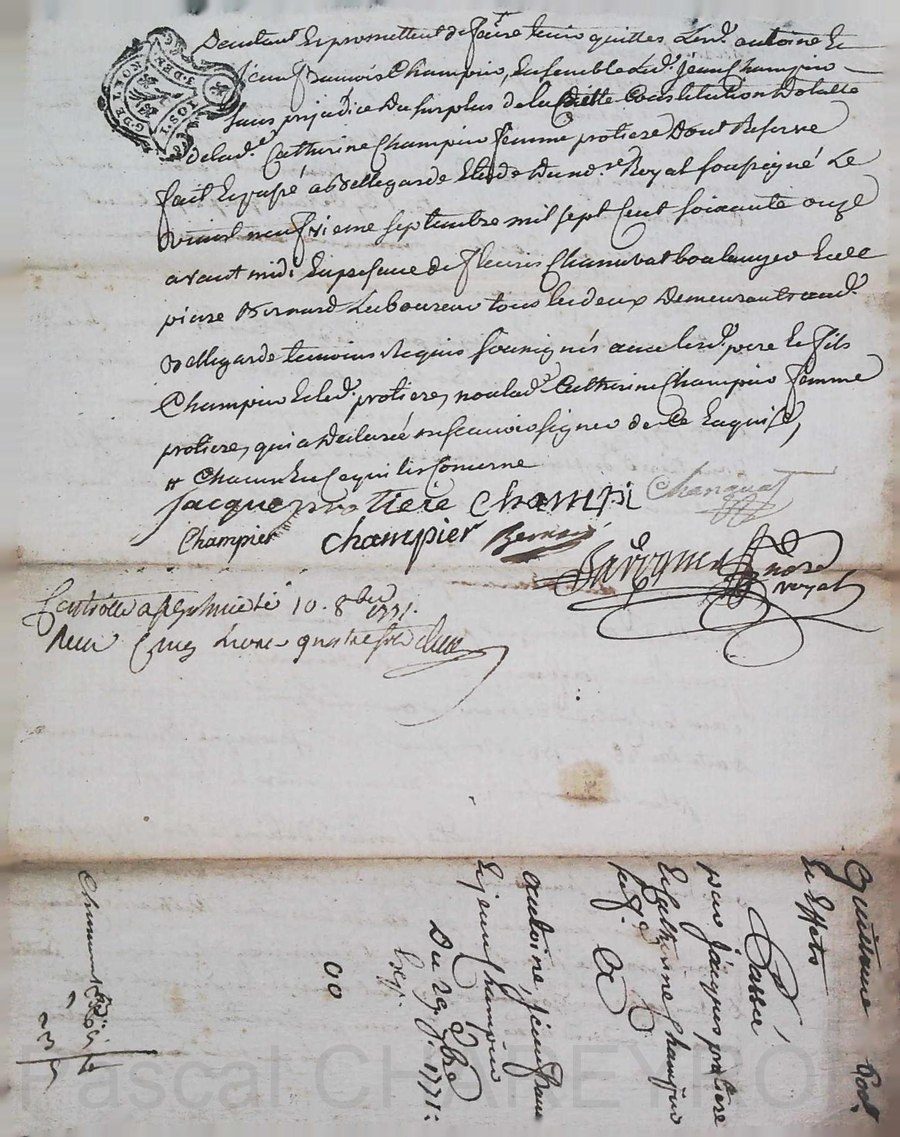 G. DE LYON
10 S. 1 DEN
Dautant Et promettent de faire tenir quittes Lesd. antoine Et
jean francois Champier, Ensemble Led. jean Champier
sans prejudice Du surplus de laditte Constitution Dotalle
de lad.e Catherine Champier femme protiere Dont Reserve
fait Et passé a Bellegarde Etude Du no.re Royal soussigné Le
vingt neufvieme septembre mil sept Cent soixante onze
avant midi En presence de fleuris Chanuvat boulanger Et de
pierre Bernard Laboureur tous les deux Demeurants aud.
Bellegarde temoins Requis soussignés avec lesd. pere Et fils
Champier Et led. protiere, non lad. Catherine Champier femme
protiere, qui a Déclarée ne scavoir signer de Ce Enquise,
# Chacun En Ce qui les Concerne
jacque protiere Champi Chanuat
Champier champier Bernard
no.re royal
Controlle a le 10. 8bre 1771.
Recu Cinq Livres quatre
Quittance Dot.
Et Effets
Passée
par jacques protiere
Et Catherine Champier
sa f.e
a
antoine, jean fran
Et jean Champier
Du 29 7bre 1771.
Exp.
00
Pascal CHAREYRON